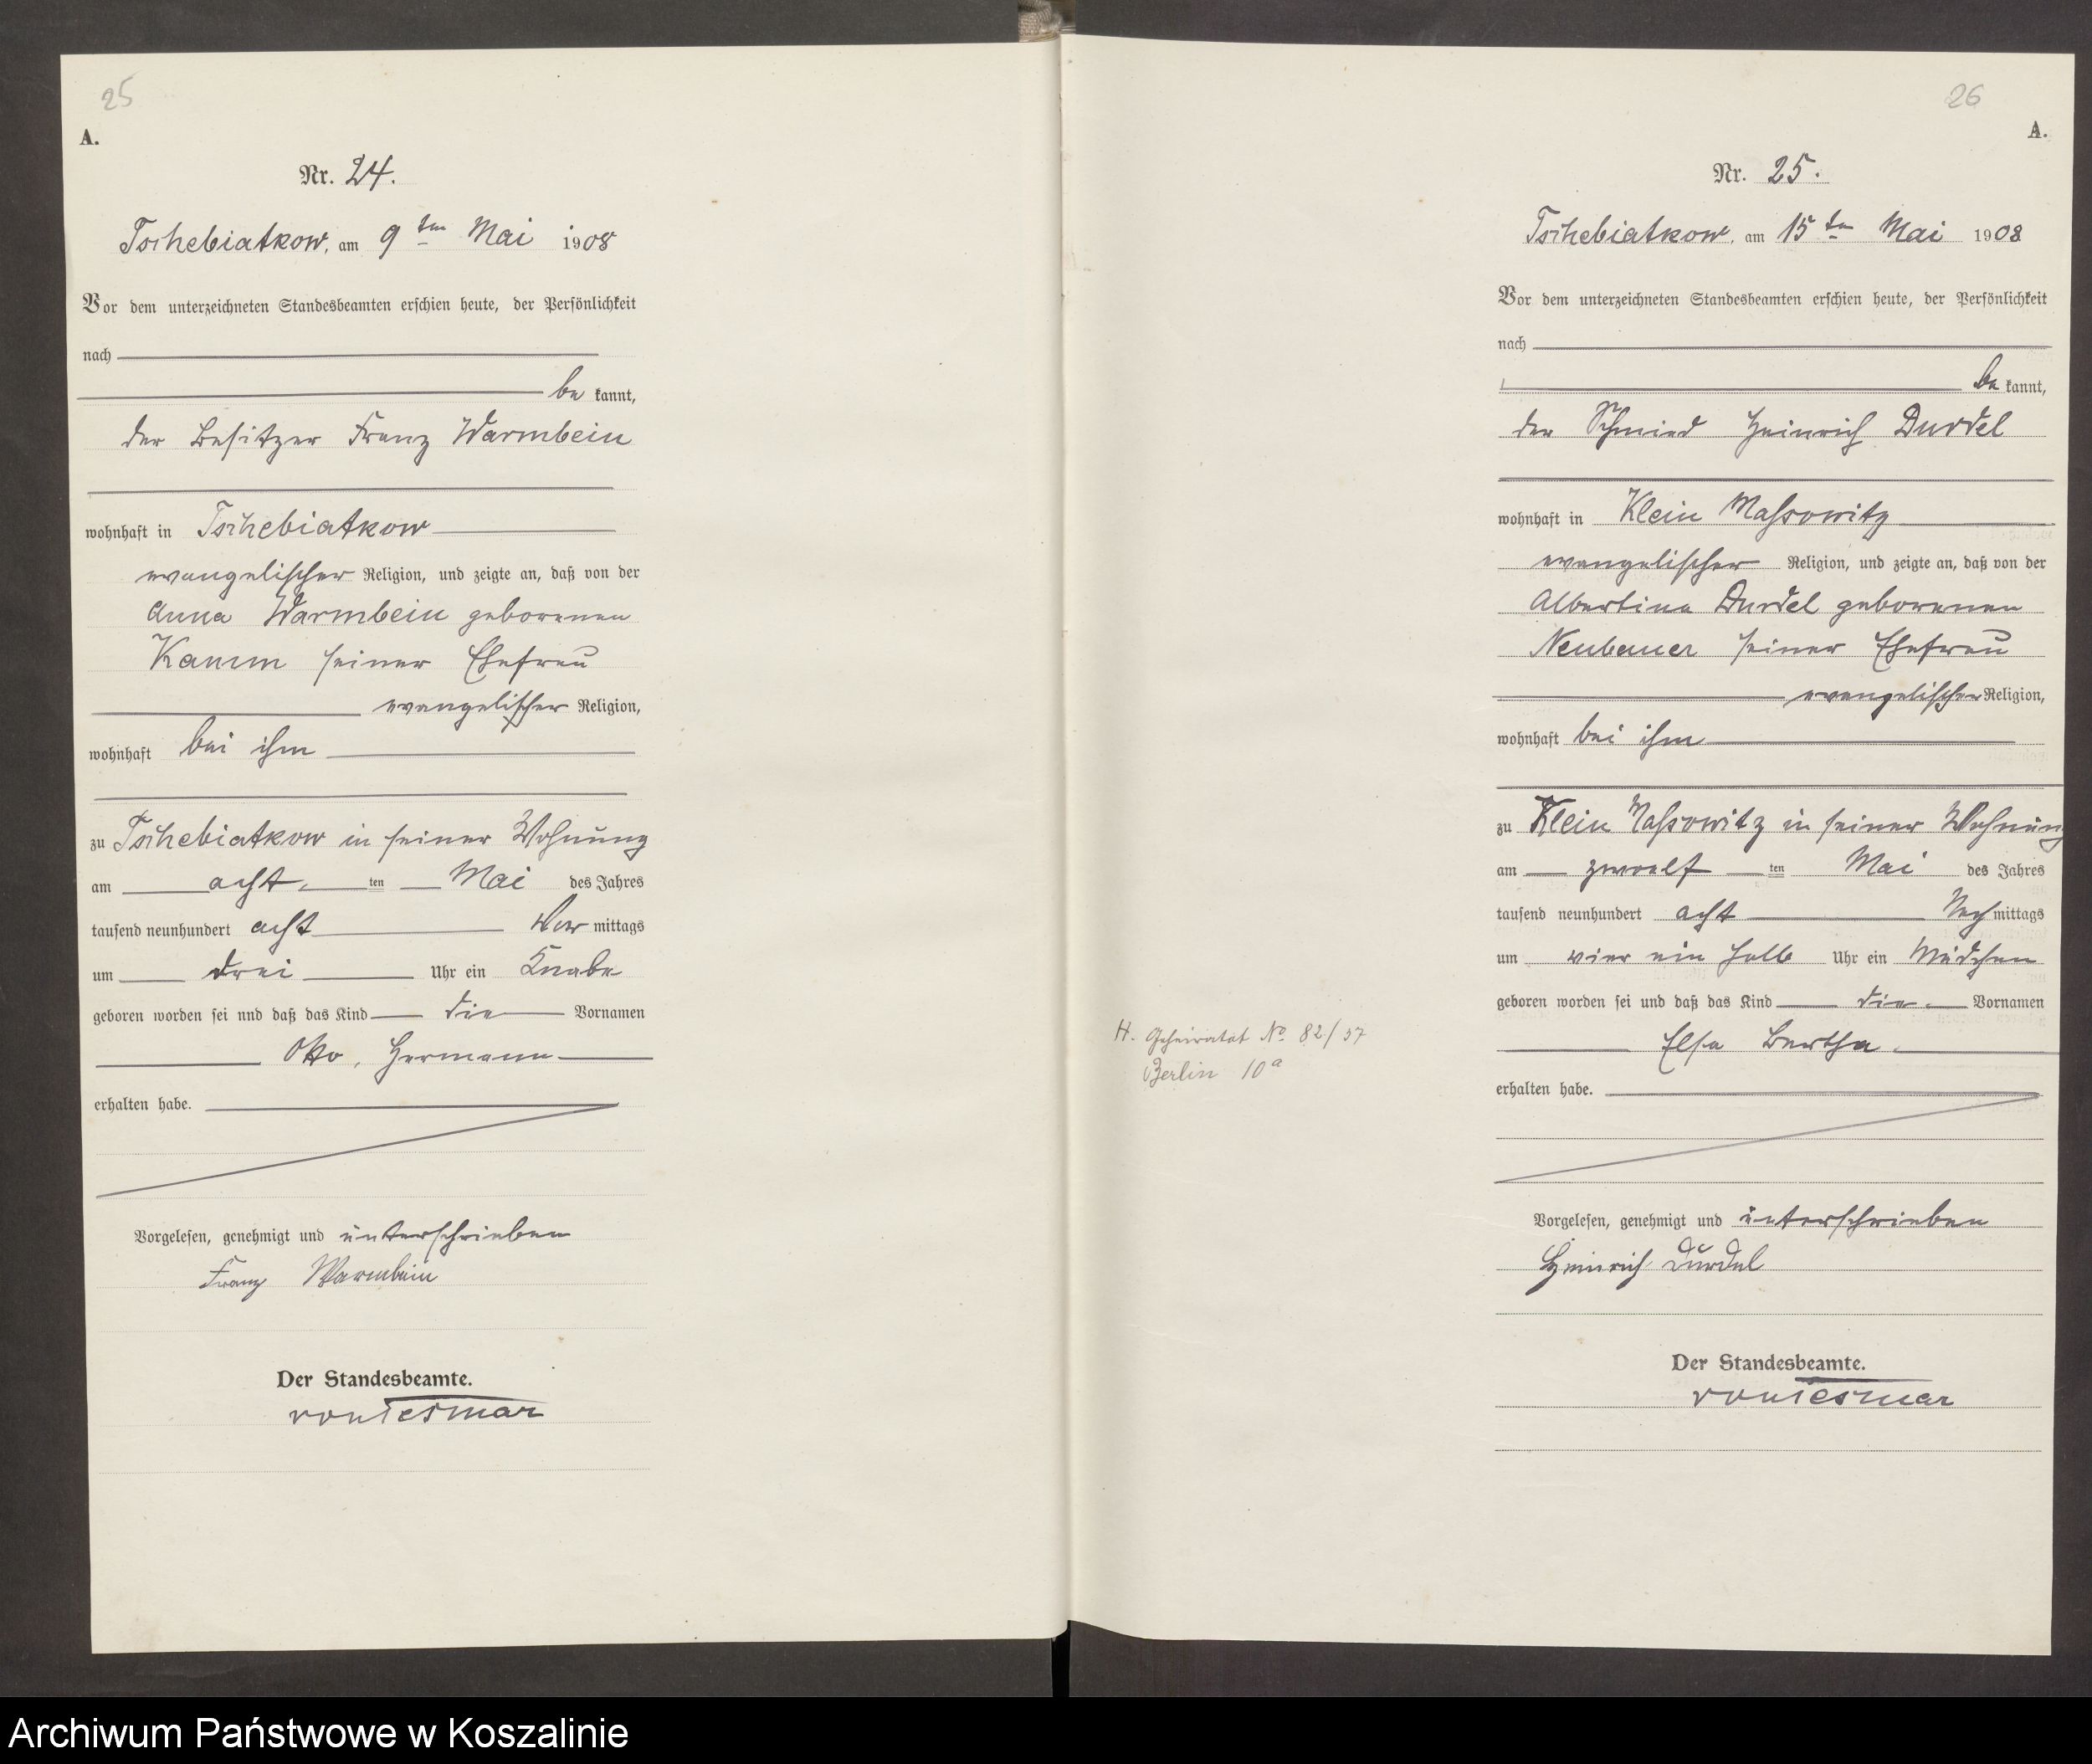 25
A.
Nr. 24.
Tschebiatkow, am 9ten Mai 1908
Vor dem unterzeichneten Standesbeamten erschien heute, der Persönlichkeit
nach
be kannt,
der Besitzer Franz Warmbein
wohnhaft in Tschebiatkow
evangelischer Religion, und zeigte an, daß von der
Anna Warmbein geborenen
Kamm seiner Ehefrau
evangelischer Religion,
wohnhaft bei ihm
zu Tschebiatkow in seiner Wohnung
am acht ten Mai des Jahres
tausend neunhundert acht Vor mittags
um drei Uhr ein Knabe
geboren worden sei und daß das Kind die Vornamen
Otto, Hermann
erhalten habe.
Vorgelesen, genehmigt und unterschrieben
Franz Warmbein
Der Standesbeamte.
von Tesmar
26
A.
Nr. 25.
Tschebiatkow, am 15ten Mai 1908
Vor dem unterzeichneten Standesbeamten erschien heute, der Persönlichkeit
nach
be kannt,
der Schmied Heinrich Durdel
wohnhaft in Klein Massowitz
evangelischer Religion, und zeigte an, daß von der
Albertine Durdel geborenen
Neubauer seiner Ehefrau
evangelischer Religion,
wohnhaft bei ihm
zu Klein Massowitz in seiner Wohnung
am zwoelf ten Mai des Jahres
tausend neunhundert acht Nach mittags
um vier ein halb Uhr ein Mädchen
geboren worden sei und daß das Kind die Vornamen
Elsa Bertha
erhalten habe.
Vorgelesen, genehmigt und unterschrieben
Heinrich Durdel
Der Standesbeamte.
von Tesmar
H. Geheiratet No 82/37
Berlin 10a
Archiwum Państwowe w Koszalinie